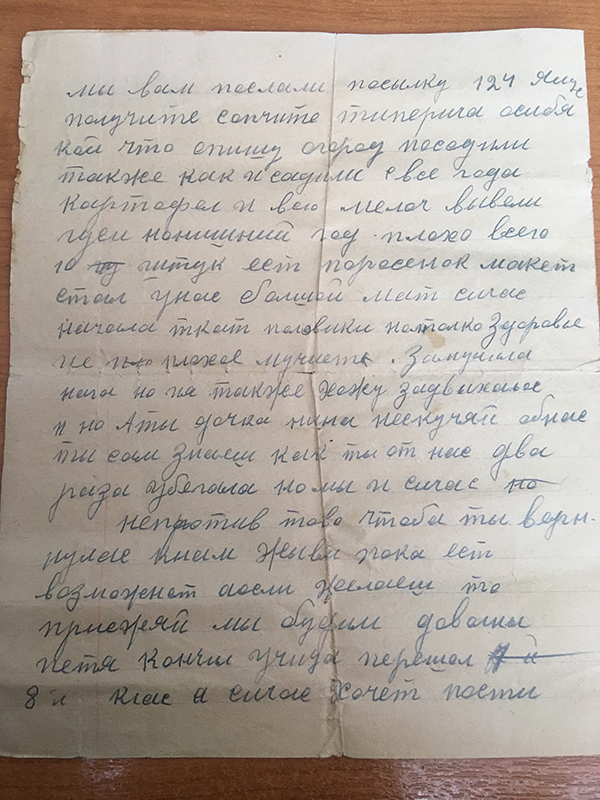 мы вам послали посылку 124 яиц
получите сопчите типерича особя
кой что опишу огород посодили
также как и садили все года
картофел и всю мелоч вывели
гуси нонишний год плохо всего
10 штук ест поросенок макет
стал унас болшой мат сичас
начала ткат половики но толко здоровье
не плохое мучиетъ. Замучила
нага но на также хожу задвихалас
и но Аты дочка нина нескучяй обнас
ты сам знаеш как ты от нас два
раза убегала но мы и сичас но
непротив тово чтоба ты верн.
улас книам жыви пока ест
возможност аесли желаеш то
приежяй мы будим доволны
петя кончил учида перешол й
8 й клас а сичас хочет пости